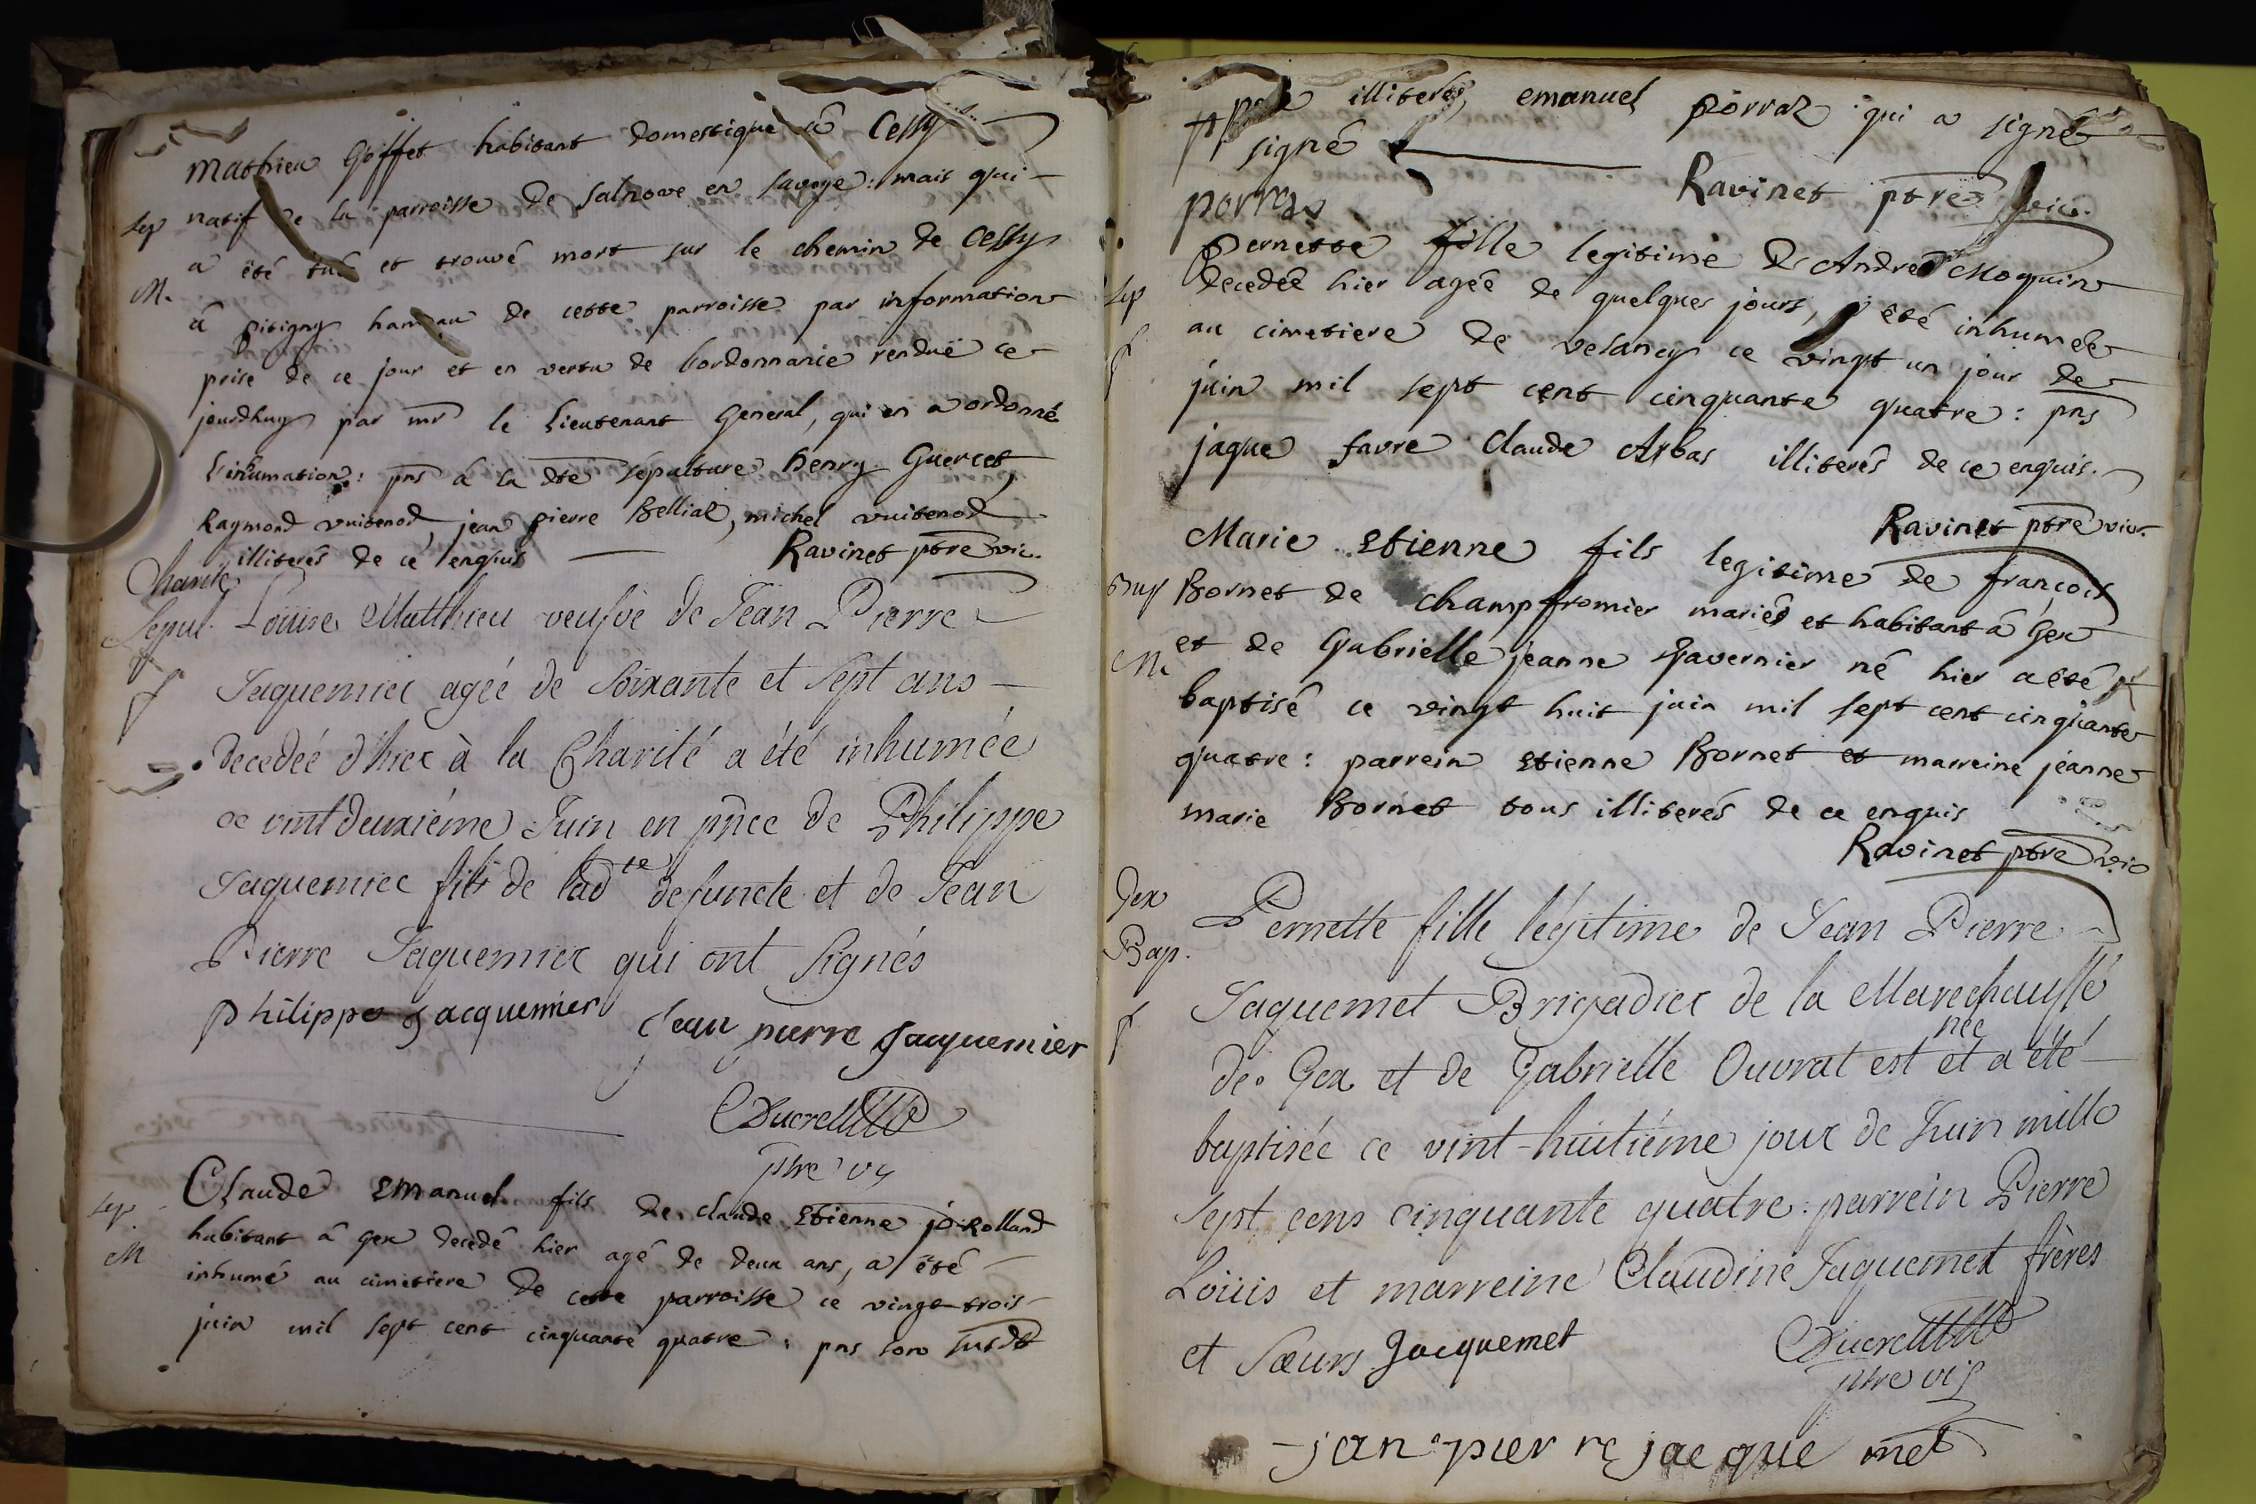 Mathieu Goffet habitant domestique â Cessy
Sep natif de la parroisse de Salnove en Savoye: mais qui
a êté tué et trouvé mort sur le chemin de Cessy
M. â Pitigny hameau de cette parroisse par information
prise de ce jour et en vertu de l'ordonnance renduë ce
jourdhuy par mr le Lieutenant General, qui en a ordonné
l'inhumation: pns â la dte sépulture henry Guercet,
Raymond vuitenod, jean pierre Belliat, michel vuitenod
illiterés de ce enquis Ravinet ptre vic.
Charité
Sepul. Loüise Matthieu veufve de Jean Pierre
f Jaquemier agée de soixante et sept ans
decedée d'hier à la Charité a été inhumée
ce vint deuxiéme Juin en pnce de Philippe
Jaquemier fils de lad te defuncte et de Jean
Pierre Jaquemier qui ont signés
philippe jacquemier jean pierre jacquemier
Ducret
ptre vic
Sep. Claude Emanuel fils de claude Etienne Rolland
M habitant â Gex decedé hier agé de deux ans, a êté
inhumé au cimetiere de cette parroisse ce vingt trois
juin mil sept cent cinquante quatre: pns son susdt
pere illiterés, emanuel porraz qui a signé
signé
porraz Ravinet ptre vic.
Sep pernette fille legitime de André Moquin
f decedée hier agée de quelques jours, a êté inhumée
au cimetiere de vesancy ce vingt un jour de
juin mil sept cent cinquante quatre: pns
jaque favre claude Arbas illiterés de ce enquis.
Ravinet ptre vic.
Marie Etienne fils legitime de françois
Bap Bornet de champfromier mariés et habitant â Gex
M et de Gabrielle jeanne Gavernier né hier a été
baptisé ce vingt huit juin mil sept cent cinquante
quatre: parrein Etienne Bornet et marreine jeanne
marie Bornet tous illiterés de ce enquis
Ravinet ptre vic
Gex
Bap. Pernette fille légitime de Jean Pierre
f Jaquemet Brigadier de la Marechaussé
née
de Gex et de Gabrielle Ouvrat est et a été
baptisée ce vint-huitiéme jour de Juin mille
sept cens cinquante quatre: parrein Pierre
Loüis et marreine Claudine Jaquemet frères
et sœurs Jacquemet Ducret
ptre vic
jan pier re jacque met